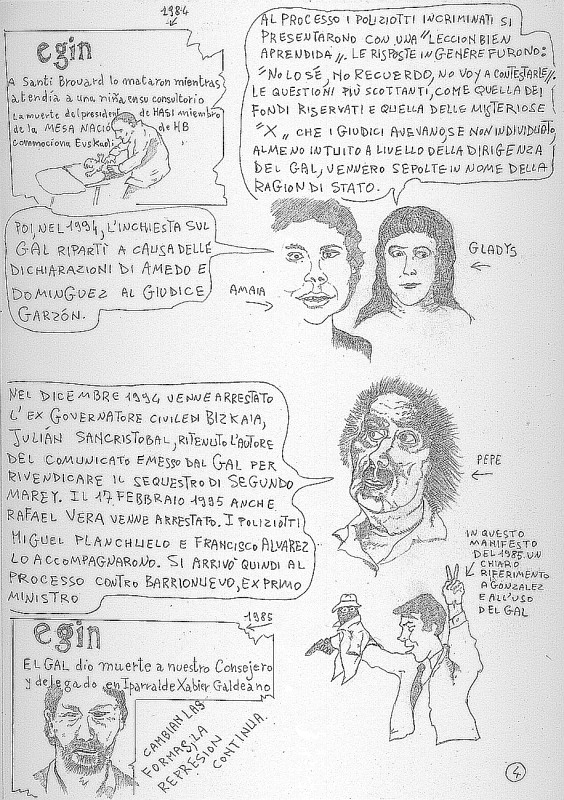 1984
egin
A Santi Brouard lo mataron mientras
atendía a una niña en su consultorio
La muerte del president de HASI miembro
de la MESA NACIÓ de HB
commociona Euskadi
AL PROCESSO I POLIZIOTTI INCRIMINATI SI
PRESENTARONO CON UNA "LECCION BIEN
APRENDIDA". LE RISPOSTE IN GENERE FURONO:
"NO LO SÉ, NO RECUERDO, NO VOY A CONTESTARLE".
LE QUESTIONI PIÙ SCOTTANTI, COME QUELLA DEI
FONDI RISERVATI E QUELLA DELLE MISTERIOSE
"X" CHE I GIUDICI AVEVANO SE NON INDIVIDUATO,
ALMENO INTUITO A LIVELLO DELLA DIRIGENZA
DEL GAL, VENNERO SEPOLTE IN NOME DELLA
RAGION DI STATO.
POI, NEL 1994, L'INCHIESTA SUL
GAL RIPARTÌ A CAUSA DELLE
DICHIARAZIONI DI AMEDO E
DOMINGUEZ AL GIUDICE
GARZÓN.
AMAIA
GLADYS
NEL DICEMBRE 1994 VENNE ARRESTATO
L'EX GOVERNATORE CIVILE DI BIZKAIA,
JULIÁN SANCRISTOBAL, RITENUTO L'AUTORE
DEL COMUNICATO EMESSO DAL GAL PER
RIVENDICARE IL SEQUESTRO DI SEGUNDO
MAREY. IL 17 FEBBRAIO 1995 ANCHE
RAFAEL VERA VENNE ARRESTATO. I POLIZIOTTI
MIGUEL PLANCHUELO E FRANCISCO ALVAREZ
LO ACCOMPAGNARONO. SI ARRIVÒ QUINDI AL
PROCESSO CONTRO BARRIONUEVO, EX PRIMO
MINISTRO
PEPE
IN QUESTO
MANIFESTO
DEL 1985 UN
CHIARO
RIFERIMENTO
A GONZALEZ
E ALL'USO
DEL GAL
1985
egin
EL GAL dio muerte a nuestro Consejero
y delegado en Iparralde Xabier Galdeano
CAMBIAN LAS
FORMAS, LA
REPRESION
CONTINUA.
4